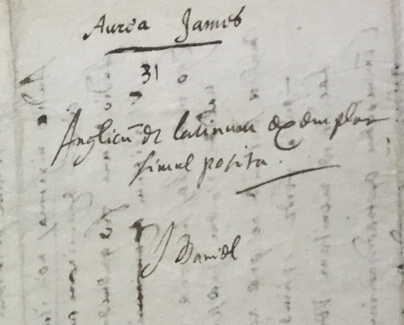 Aurea James
31
Anglicũ & latinum exemplar
simul posita.
J Daniel